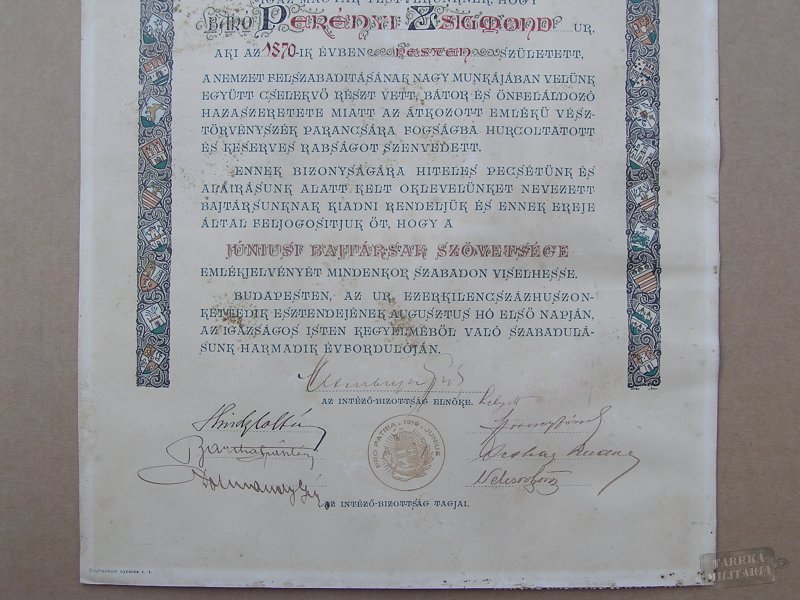 IGAZ MAGYAR TESTVÉRÜNKNEK, HOGY
BÁRÓ PERÉNYI ZSIGMOND UR,
AKI AZ 1870-IK ÉVBEN PESTEN SZÜLETETT,
A NEMZET FELSZABADITÁSÁNAK NAGY MUNKÁJÁBAN VELÜNK
EGYÜTT CSELEKVŐ RÉSZT VETT, BÁTOR ÉS ÖNFELÁLDOZÓ
HAZASZERETETE MIATT AZ ÁTKOZOTT EMLÉKÜ VÉSZ-
TÖRVÉNYSZÉK PARANCSÁRA FOGSÁGBA HURCOLTATOTT
ÉS KESERVES RABSÁGOT SZENVEDETT.
ENNEK BIZONYSÁGÁRA HITELES PECSÉTÜNK ÉS
ALÁIRÁSUNK ALATT KELT OKLEVELÜNKET NEVEZETT
BAJTÁRSUNKNAK KIADNI RENDELJÜK ÉS ENNEK EREJE
ÁLTAL FELJOGOSITJUK ŐT, HOGY A
JÚNIUSI BAJTÁRSAK SZÖVETSÉGE
EMLÉKJELVÉNYÉT MINDENKOR SZABADON VISELHESSE.
BUDAPESTEN, AZ UR EZERKILENCSZÁZHUSZON-
KETTEDIK ESZTENDEJÉNEK AUGUSZTUS HÓ ELSŐ NAPJÁN,
AZ IGAZSÁGOS ISTEN KEGYELMÉBŐL VALÓ SZABADULÁ-
SUNK HARMADIK ÉVFORDULÓJÁN.
AZ INTÉZŐ-BIZOTTSÁG ELNÖKE.
PRO PATRIA · 1919 · JUNIUS
AZ INTÉZŐ-BIZOTTSÁG TAGJAI.
TARRKA
MILITARIA